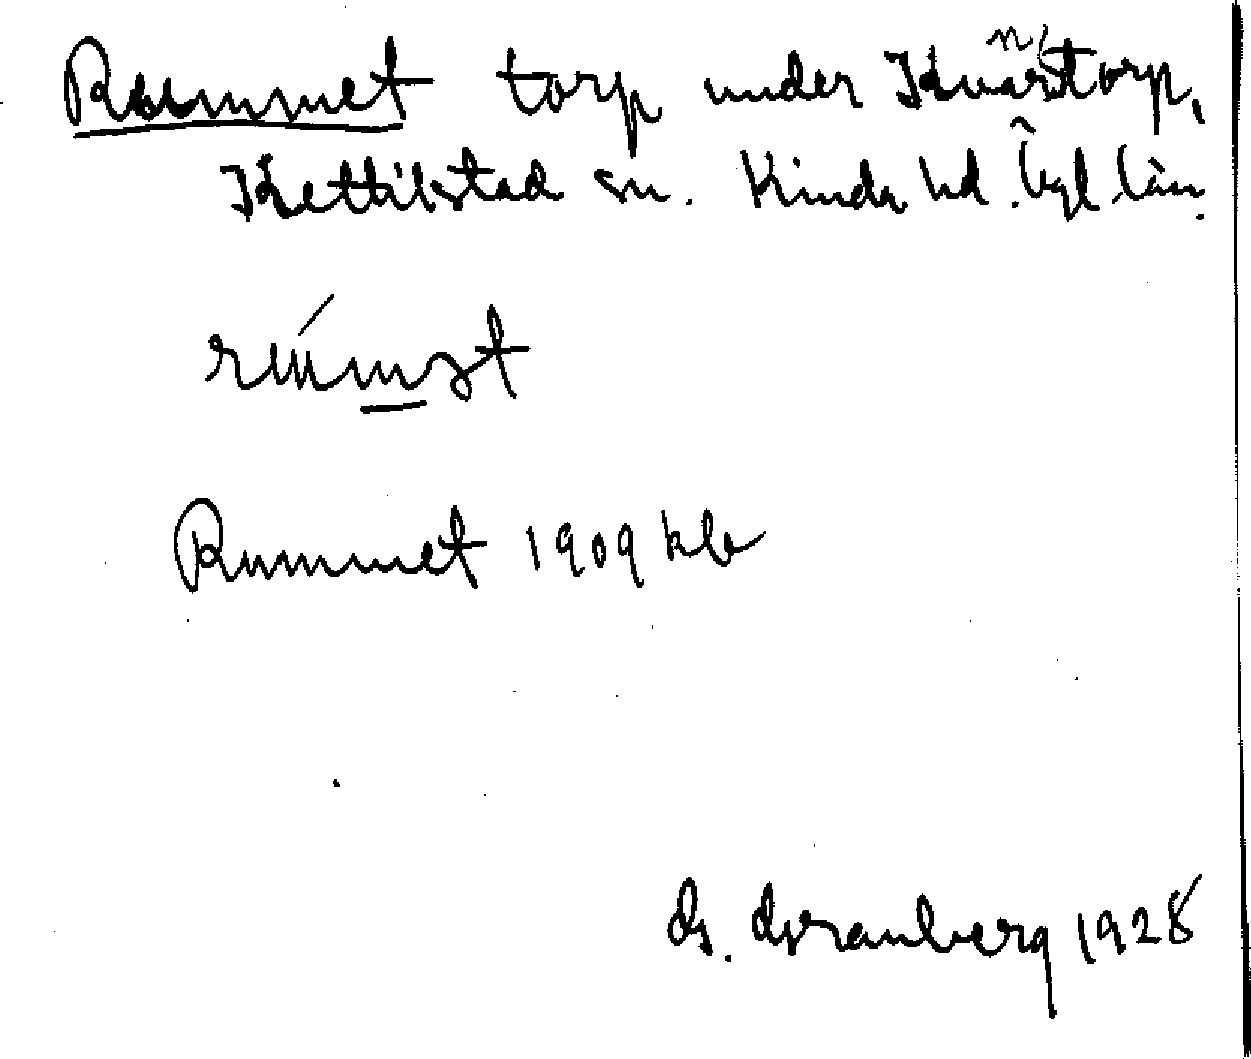 Rummet torp under Kvarntorp,
Kettilstad sn. Kinda hd. Ögl län.
Rummet 1909 klb
G. Granberg 1928